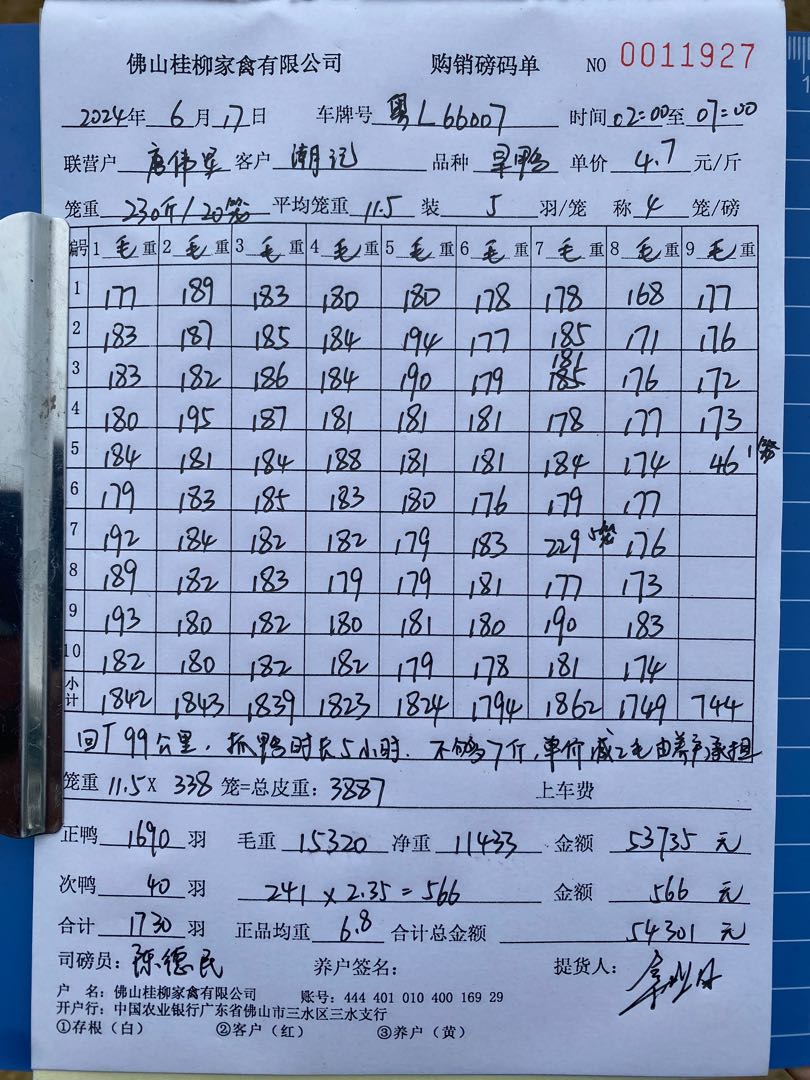 佛山桂柳家禽有限公司 购销磅码单 NO 0011927
2024年 6月 17日 车牌号 粤L66007 时间 02:00至 07:00
联营户 唐伟 客户 潮记 品种 旱鸭 单价 4.7 元/斤
笼重 230斤/20笼 平均笼重 11.5 装 5 羽/笼 称 4 笼/磅
编号 1 毛 重 2 毛 重 3 毛 重 4 毛 重 5 毛 重 6 毛 重 7 毛 重 8 毛 重 9 毛 重
1 177 189 183 180 180 178 178 168 177
2 183 187 185 184 194 177 185 171 176
3 183 182 186 184 190 179 181 185 176 172
4 180 195 187 181 181 181 178 177 173
5 184 181 184 188 181 181 184 174 46 1笼
6 179 183 185 183 180 176 179 177
7 192 184 182 182 179 183 229 5笼 176
8 189 182 183 179 179 181 177 173
9 193 180 182 180 181 180 190 183
10 182 180 182 182 179 178 181 174
小计 1842 1843 1839 1823 1824 1794 1862 1749 744
回厂99公里，抓鸭时长5小时. 不够7斤，单价减2毛由养户承担
笼重 11.5 X 338 笼=总皮重：3887 上车费
正鸭 1690 羽 毛重 15320 净重 11433 金额 53735 元
次鸭 40 羽 241 x 2.35 = 566 金额 566 元
合计 1730 羽 正品均重 6.8 合计总金额 54301 元
司磅员：陈德民 养户签名： 提货人：
户 名：佛山桂柳家禽有限公司 账号：444 401 010 400 169 29
开户行：中国农业银行广东省佛山市三水区三水支行
①存根（白） ②客户（红） ③养户（黄）